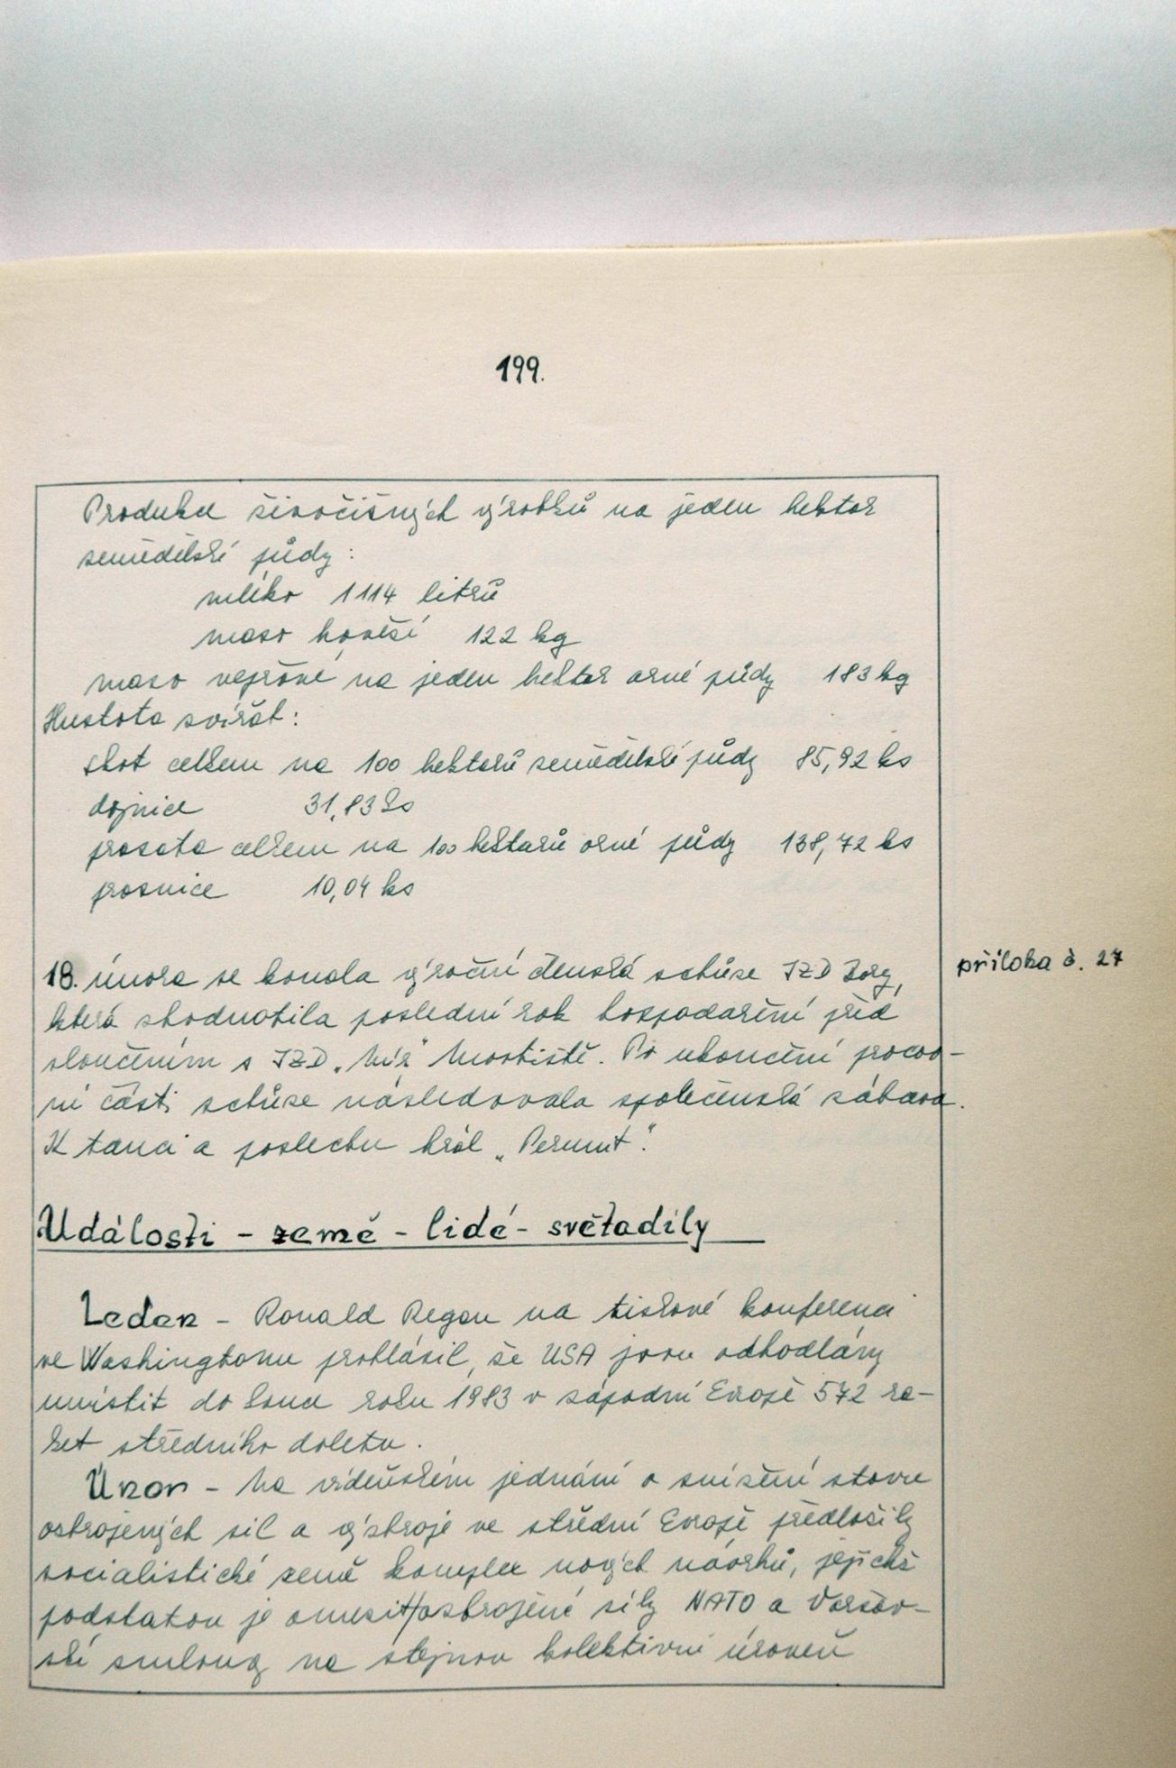 199.
Produkce živočišných výrobků na jeden hektar
zemědělské půdy:
mléko 1114 litrů
maso hovězí 122 kg
maso vepřové na jeden hektar orné půdy 183 kg
Hustota zvířat:
skot celkem na 100 hektarů zemědělské půdy 85,92 ks
dojnice 31,83 ks
prasata celkem na 100 hektarů orné půdy 138,72 ks
prasnice 10,04 ks
18. února se konala výroční členská schůze JZD Zory, příloha č. 27
která zhodnotila poslední rok hospodaření před
sloučením s JZD „Mír" Mostiště. Po ukončení pracov-
ní části schůze následovala společenská zábava.
K tanci a poslechu hrál „Permit".
Události - země - lidé - světadíly
Leden - Ronald Regan na tiskové konferenci
ve Washingtonu prohlásil, že USA jsou odhodlány
umístit do konce roku 1983 v západní Evropě 572 ra-
ket středního doletu.
Únor - Na vídeňském jednání o snížení stavu
ozbrojených sil a výzbroje ve střední Evropě předložily
socialistické země komplex nových návrhů, jejichž
podstatou je omezit/ozbrojené síly NATO a Varšav-
ské smlouvy na stejnou kolektivní úroveň